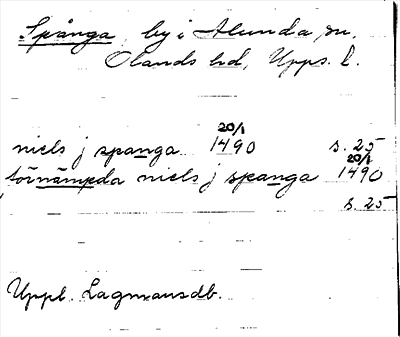 Spånga, by i Alunda sn,
Olands hd, Upps. l.
niels j spanga 20/1 1490 s. 25
förnämpda niels j spanga 20/1 1490
s. 25
Uppl. Lagmansdb.